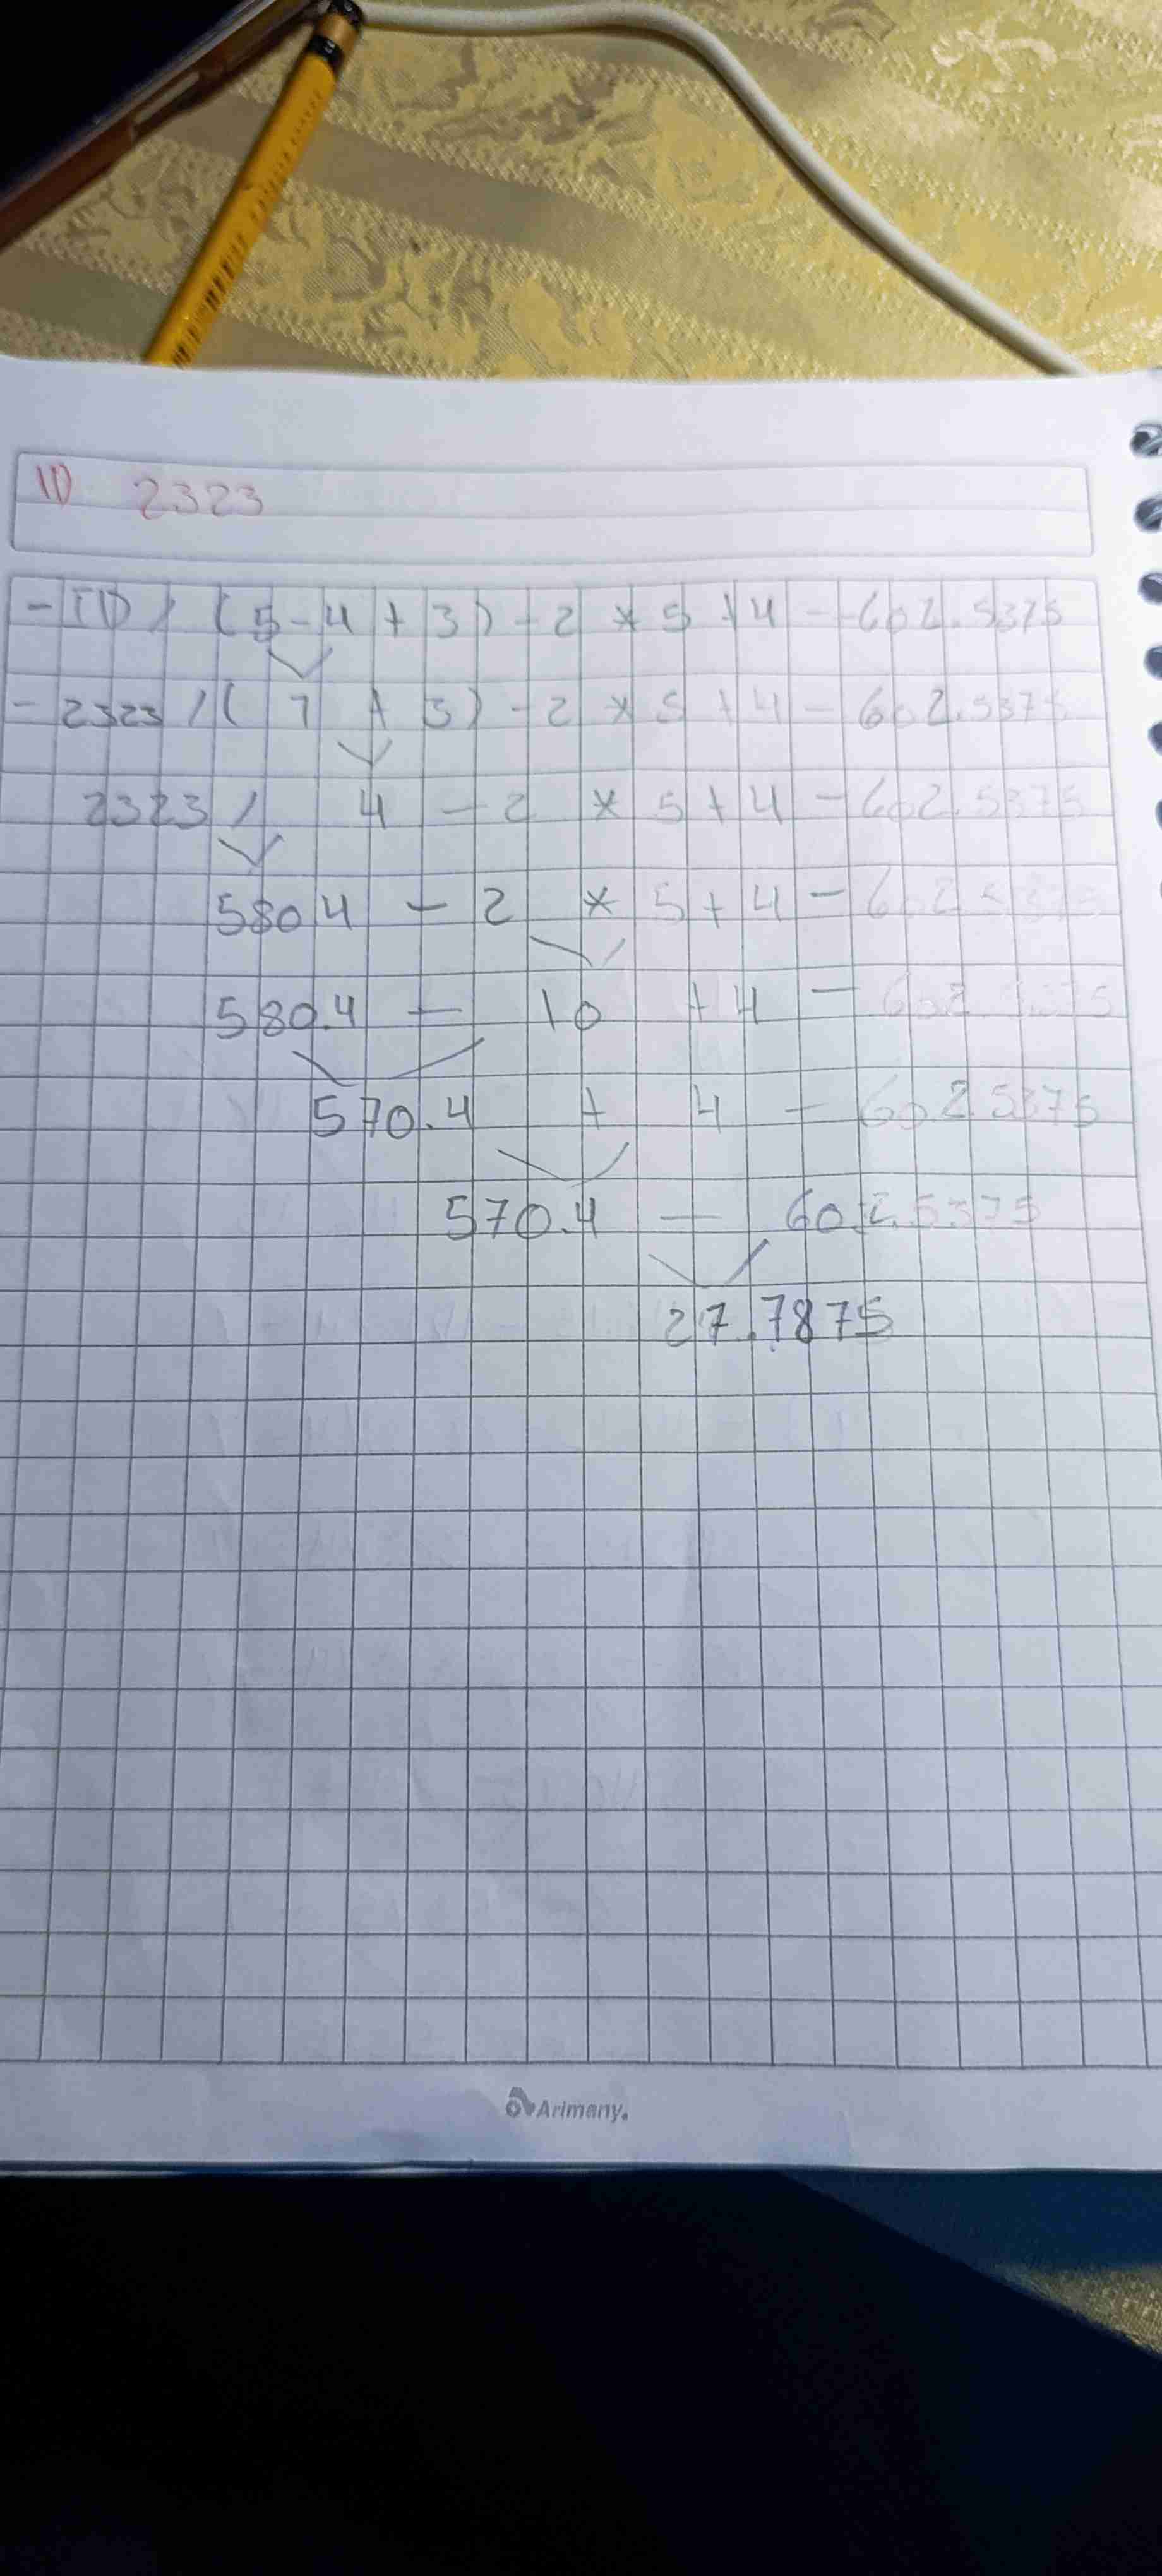 ID 2323
- ID / (5 - 4 + 3) - 2 * 5 + 4 - 602.5375
- 2323 / ( 1 + 3) - 2 * 5 + 4 - 602.5375
2323 / 4 - 2 * 5 + 4 - 602.5375
580.4 - 2 * 5 + 4 - 602.5375
580.4 - 10 + 4 - 602.5375
570.4 + 4 - 602.5375
570.4 - 602.5375
27.7875
Arimany.